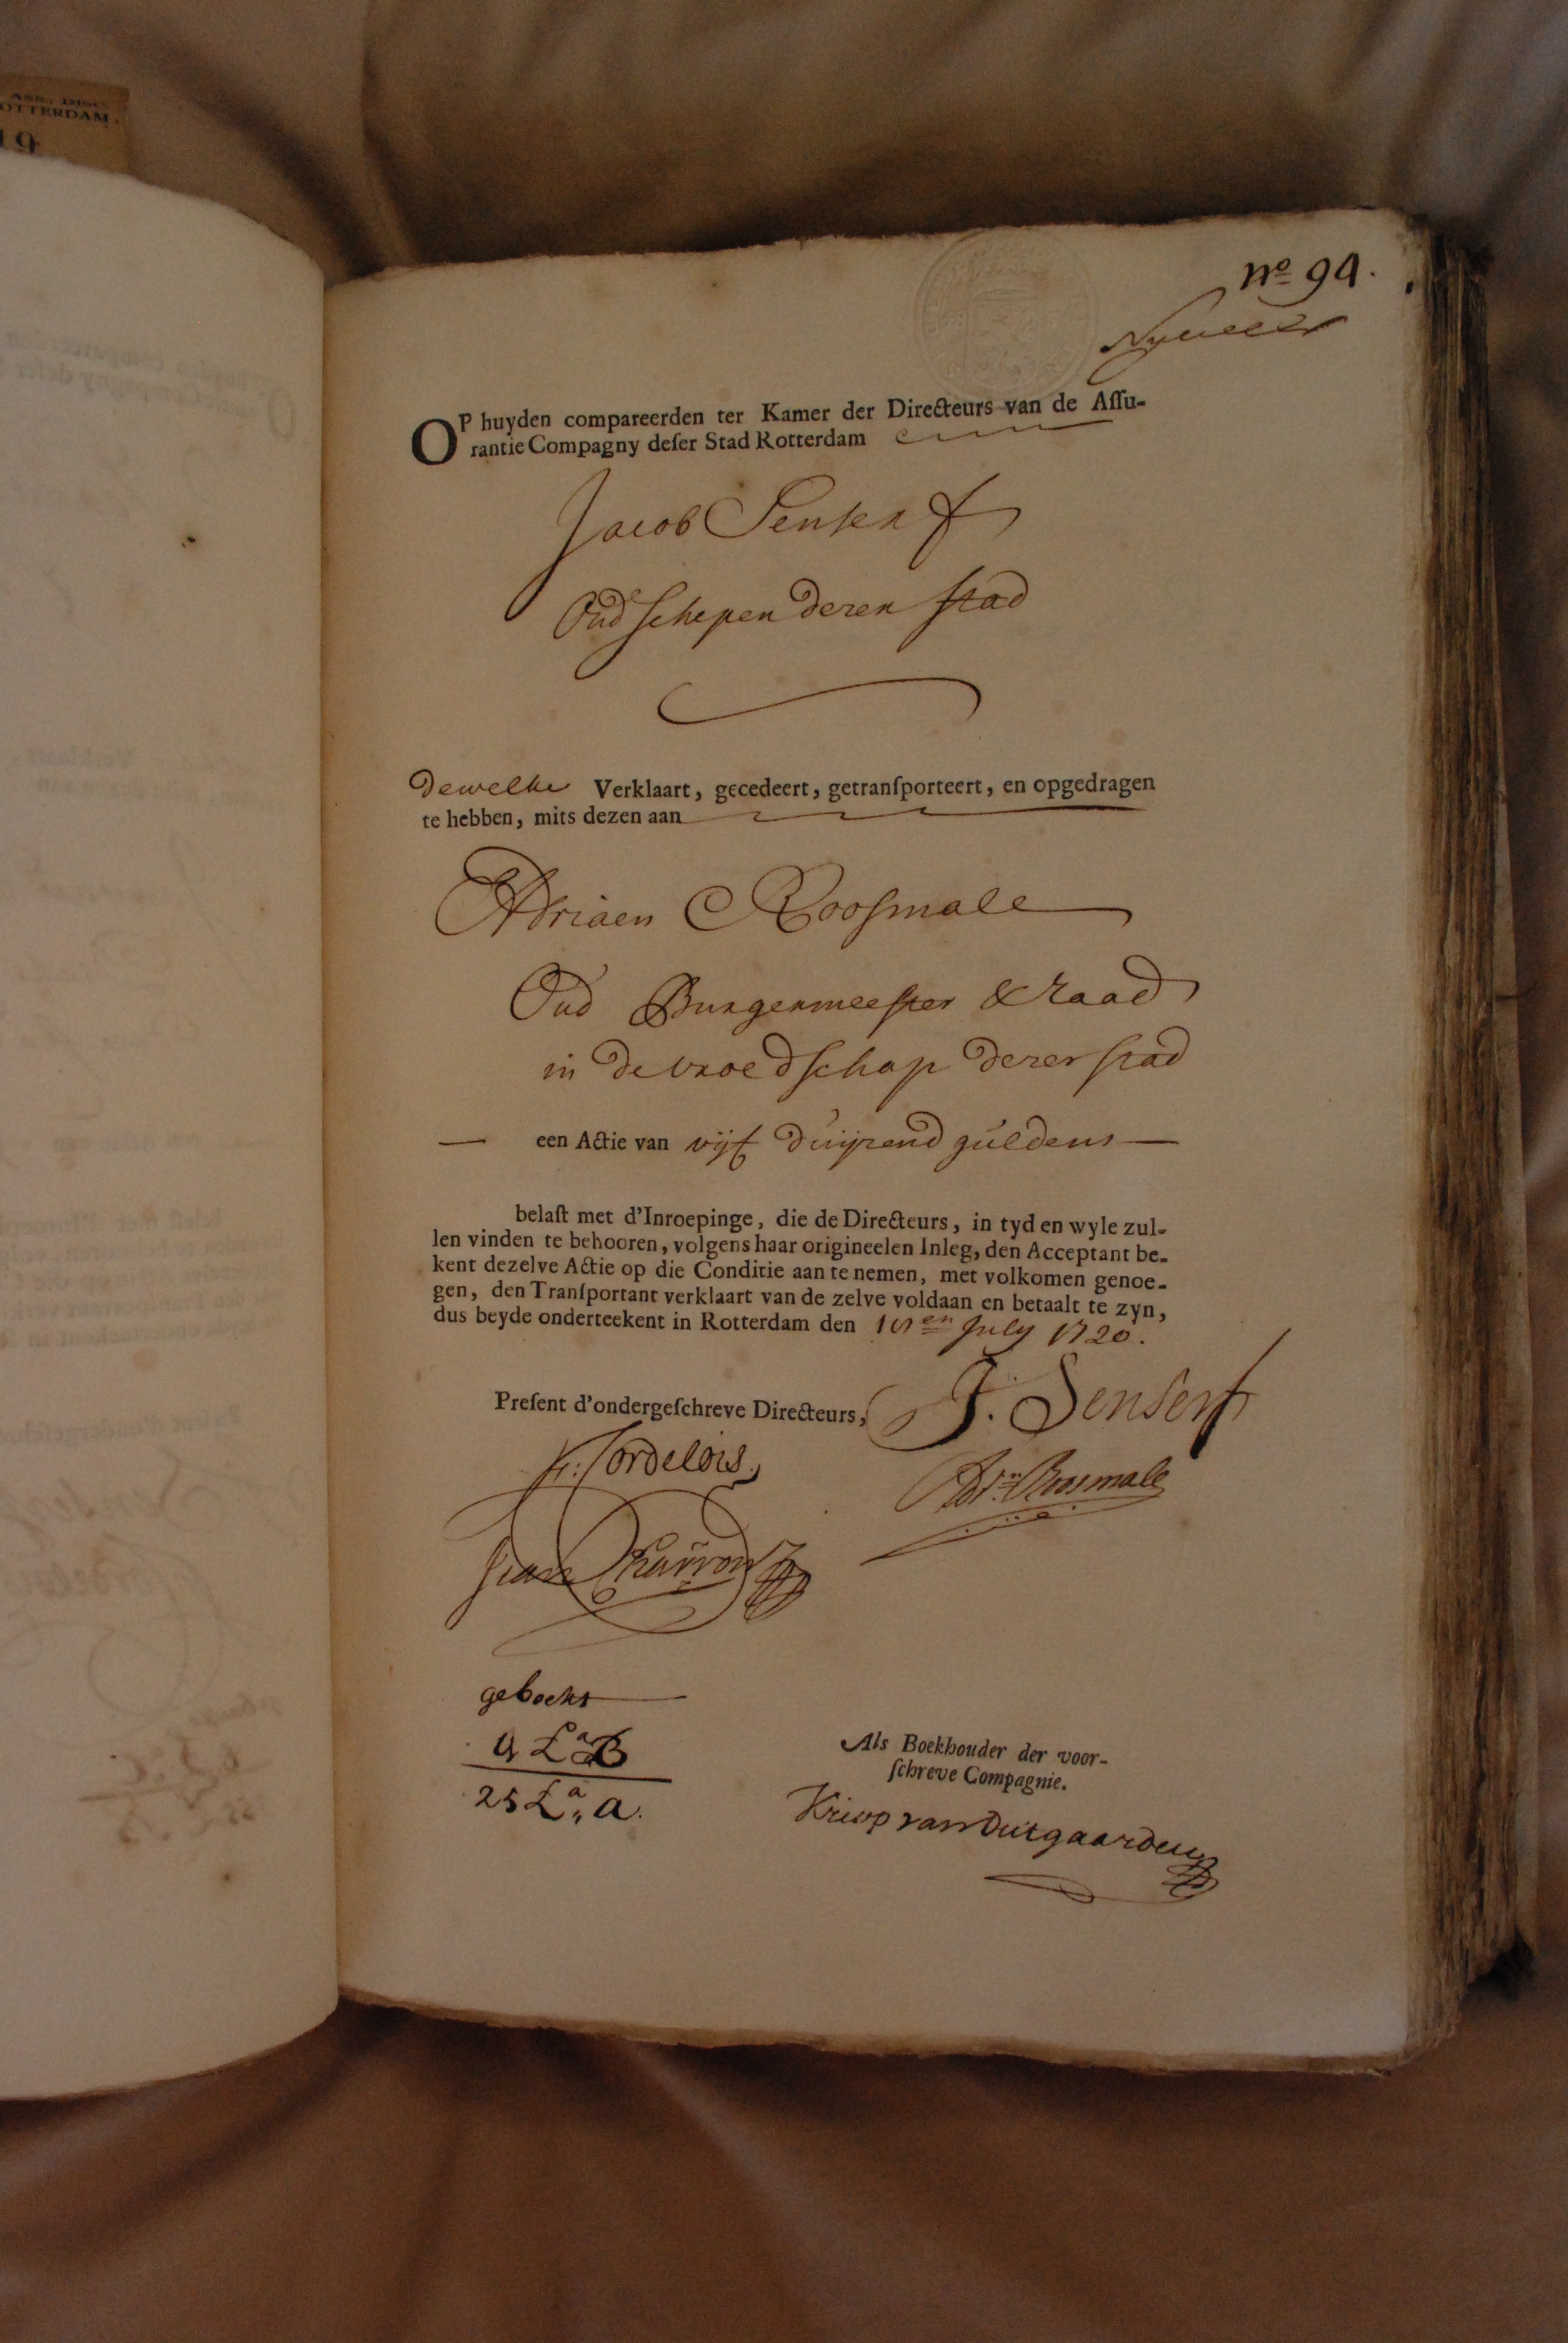 ASS. DISC.
OTTERDAM.
19
nº 94.
OP huyden compareerden ter Kamer der Directeurs van de Aſſu-
rantie Compagny deſer Stad Rotterdam
Jacob Senserf
Oud schepen dezer stad
dewelke Verklaart, gecedeert, getranſporteert, en opgedragen
te hebben, mits dezen aan
Adriaen Roosmale
Oud Burgermeester & raad
in de vroedschap dezer stad
een Actie van vijf duijzend guldens
belaſt met d'Inroepinge, die de Directeurs, in tyd en wyle zul-
len vinden te behooren, volgens haar origineelen Inleg, den Acceptant be-
kent dezelve Actie op die Conditie aan te nemen, met volkomen genoe-
gen, den Tranſportant verklaart van de zelve voldaan en betaalt te zyn,
dus beyde onderteekent in Rotterdam den July 1720.
Preſent d'ondergeſchreve Directeurs, J. Senserf
Adrn. Roosmale
Jean Charron
geboekt
9 La B
25 La „ a.
Als Boekhouder der voor-
ſchreve Compagnie.